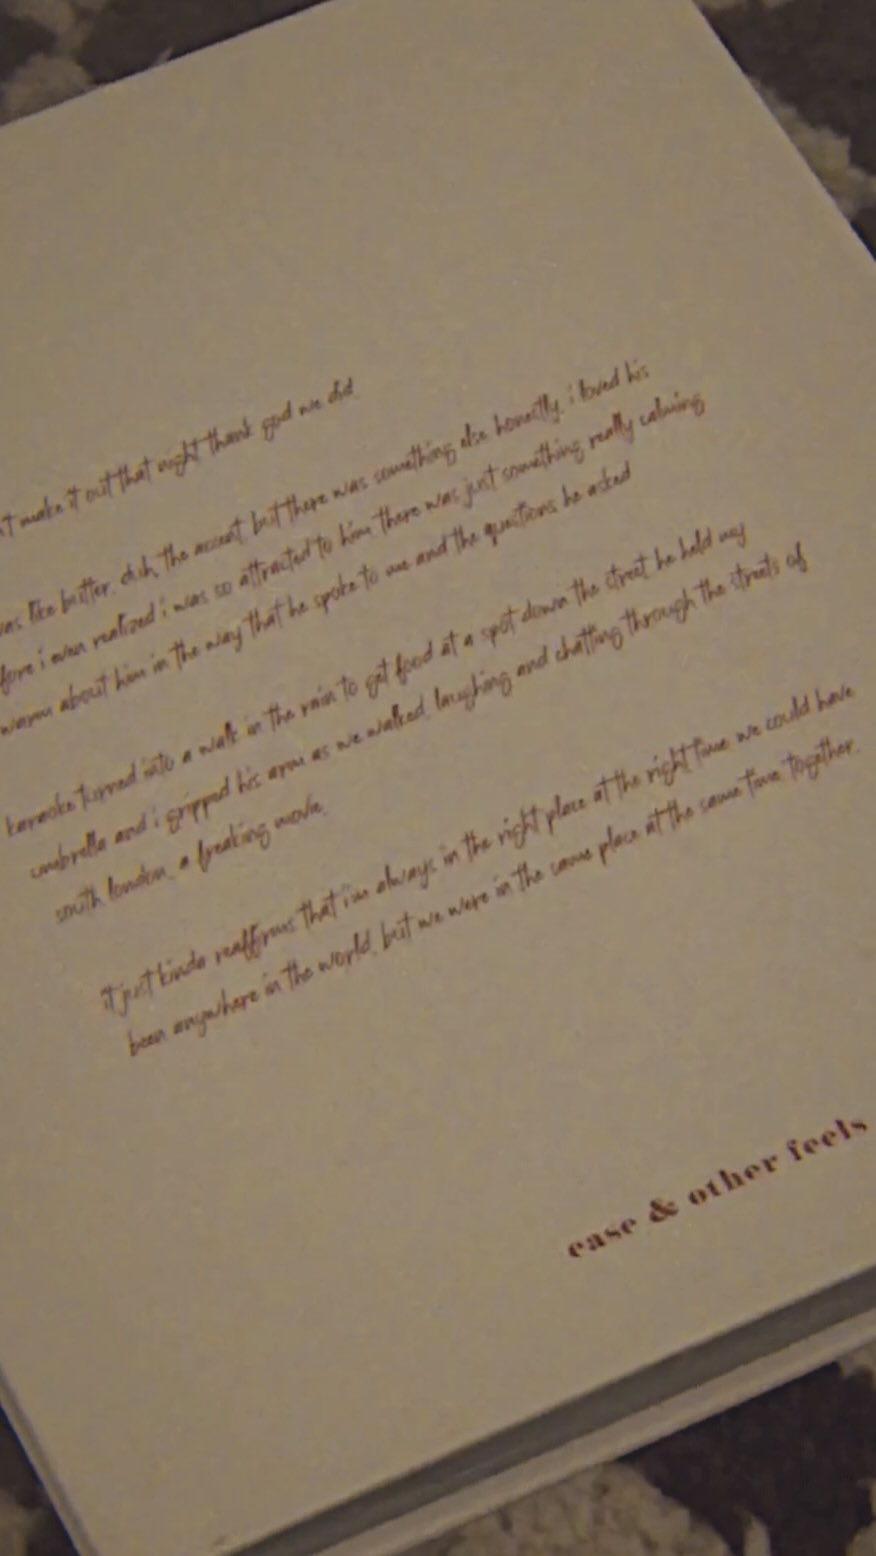 make it out that night thank god we did.
was like butter. duh, the accent, but there was something else honestly. i loved his
i even realized i was so attracted to him. there was just something really calming
warm about him in the way that he spoke to me and the questions he asked
karaoke turned into a walk in the rain to get food at a spot down the street. he held my
umbrella and i gripped his arm as we walked, laughing and chatting through the streets of
south london. a freaking movie.
it just kinda reaffirms that i'm always in the right place at the right time. we could have
been anywhere in the world, but we were in the same place at the same time together.
ease & other feels